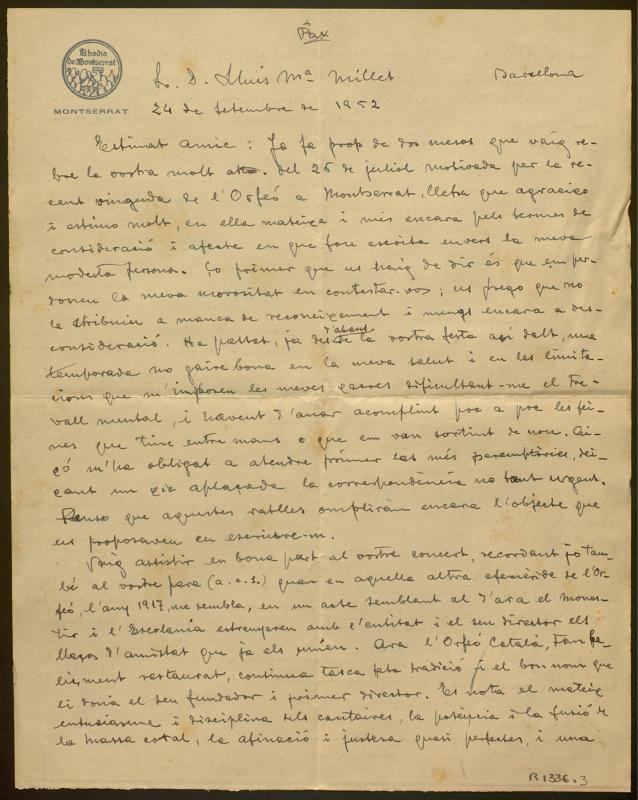 Pax
Abadia
de Montserrat
MONTSERRAT
Sr. D. Lluís Mª Millet
Barcelona
24 de setembre de 1952
Estimat amic: Ja fa prop de dos mesos que vaig re-
bre la vostra molt atta. del 25 de juliol motivada per la re-
cent vinguda de l'Orfeó a Montserrat, lletra que agraeixo
i estimo molt, en ella mateixa i més encara pels termes de
consideració i afecte en que fou escrita envers la meva
modesta persona. Lo primer que us haig de dir és que em per-
doneu la meva morositat en contestar-vos; us prego que no
la atribuiu a manca de reconeixement i menys encara a des-
consideració. He passat, ja des d'abans de la vostra festa así dalt, una
temporada no gaire bona en la meva salut i en les limita-
cions que m'imposen les meves xacres dificultant-me el tre-
vall mental, i havent d'anar acomplint poc a poc les fei-
nes que tinc entre mans o que em van sortint de nou. Ai-
xó m'ha obligat a atendre primer las més peremptòries, dei-
xant un xic aplaçada la correspondència no tant urgent.
Penso que aquestes ratlles ompliràn encara l'objecte que
us proposaveu en escriure-m.
Vaig assistir en bona part al vostre concert, recordant jo tam-
bé al vostre pare (a.c.s.) quan en aquella altra efemèride de l'Or-
feó, l'any 1917, me sembla, en un acte semblant al d'ara el mones-
tir i l'Escolania estrenyeren amb l'entitat i el seu director els
llaços d'amistat que ja els unien. Ara l'Orfeó Català, tan fe-
liçment restaurat, continua tasca, tradició i el bon nom que
li donà el seu fundador i primer director. Es nota el mateix
entusiasme i disciplina dels cantaires, la potència i la fusió de
la massa coral, la afinació i justesa quasi perfectes, i una
R 1336.3